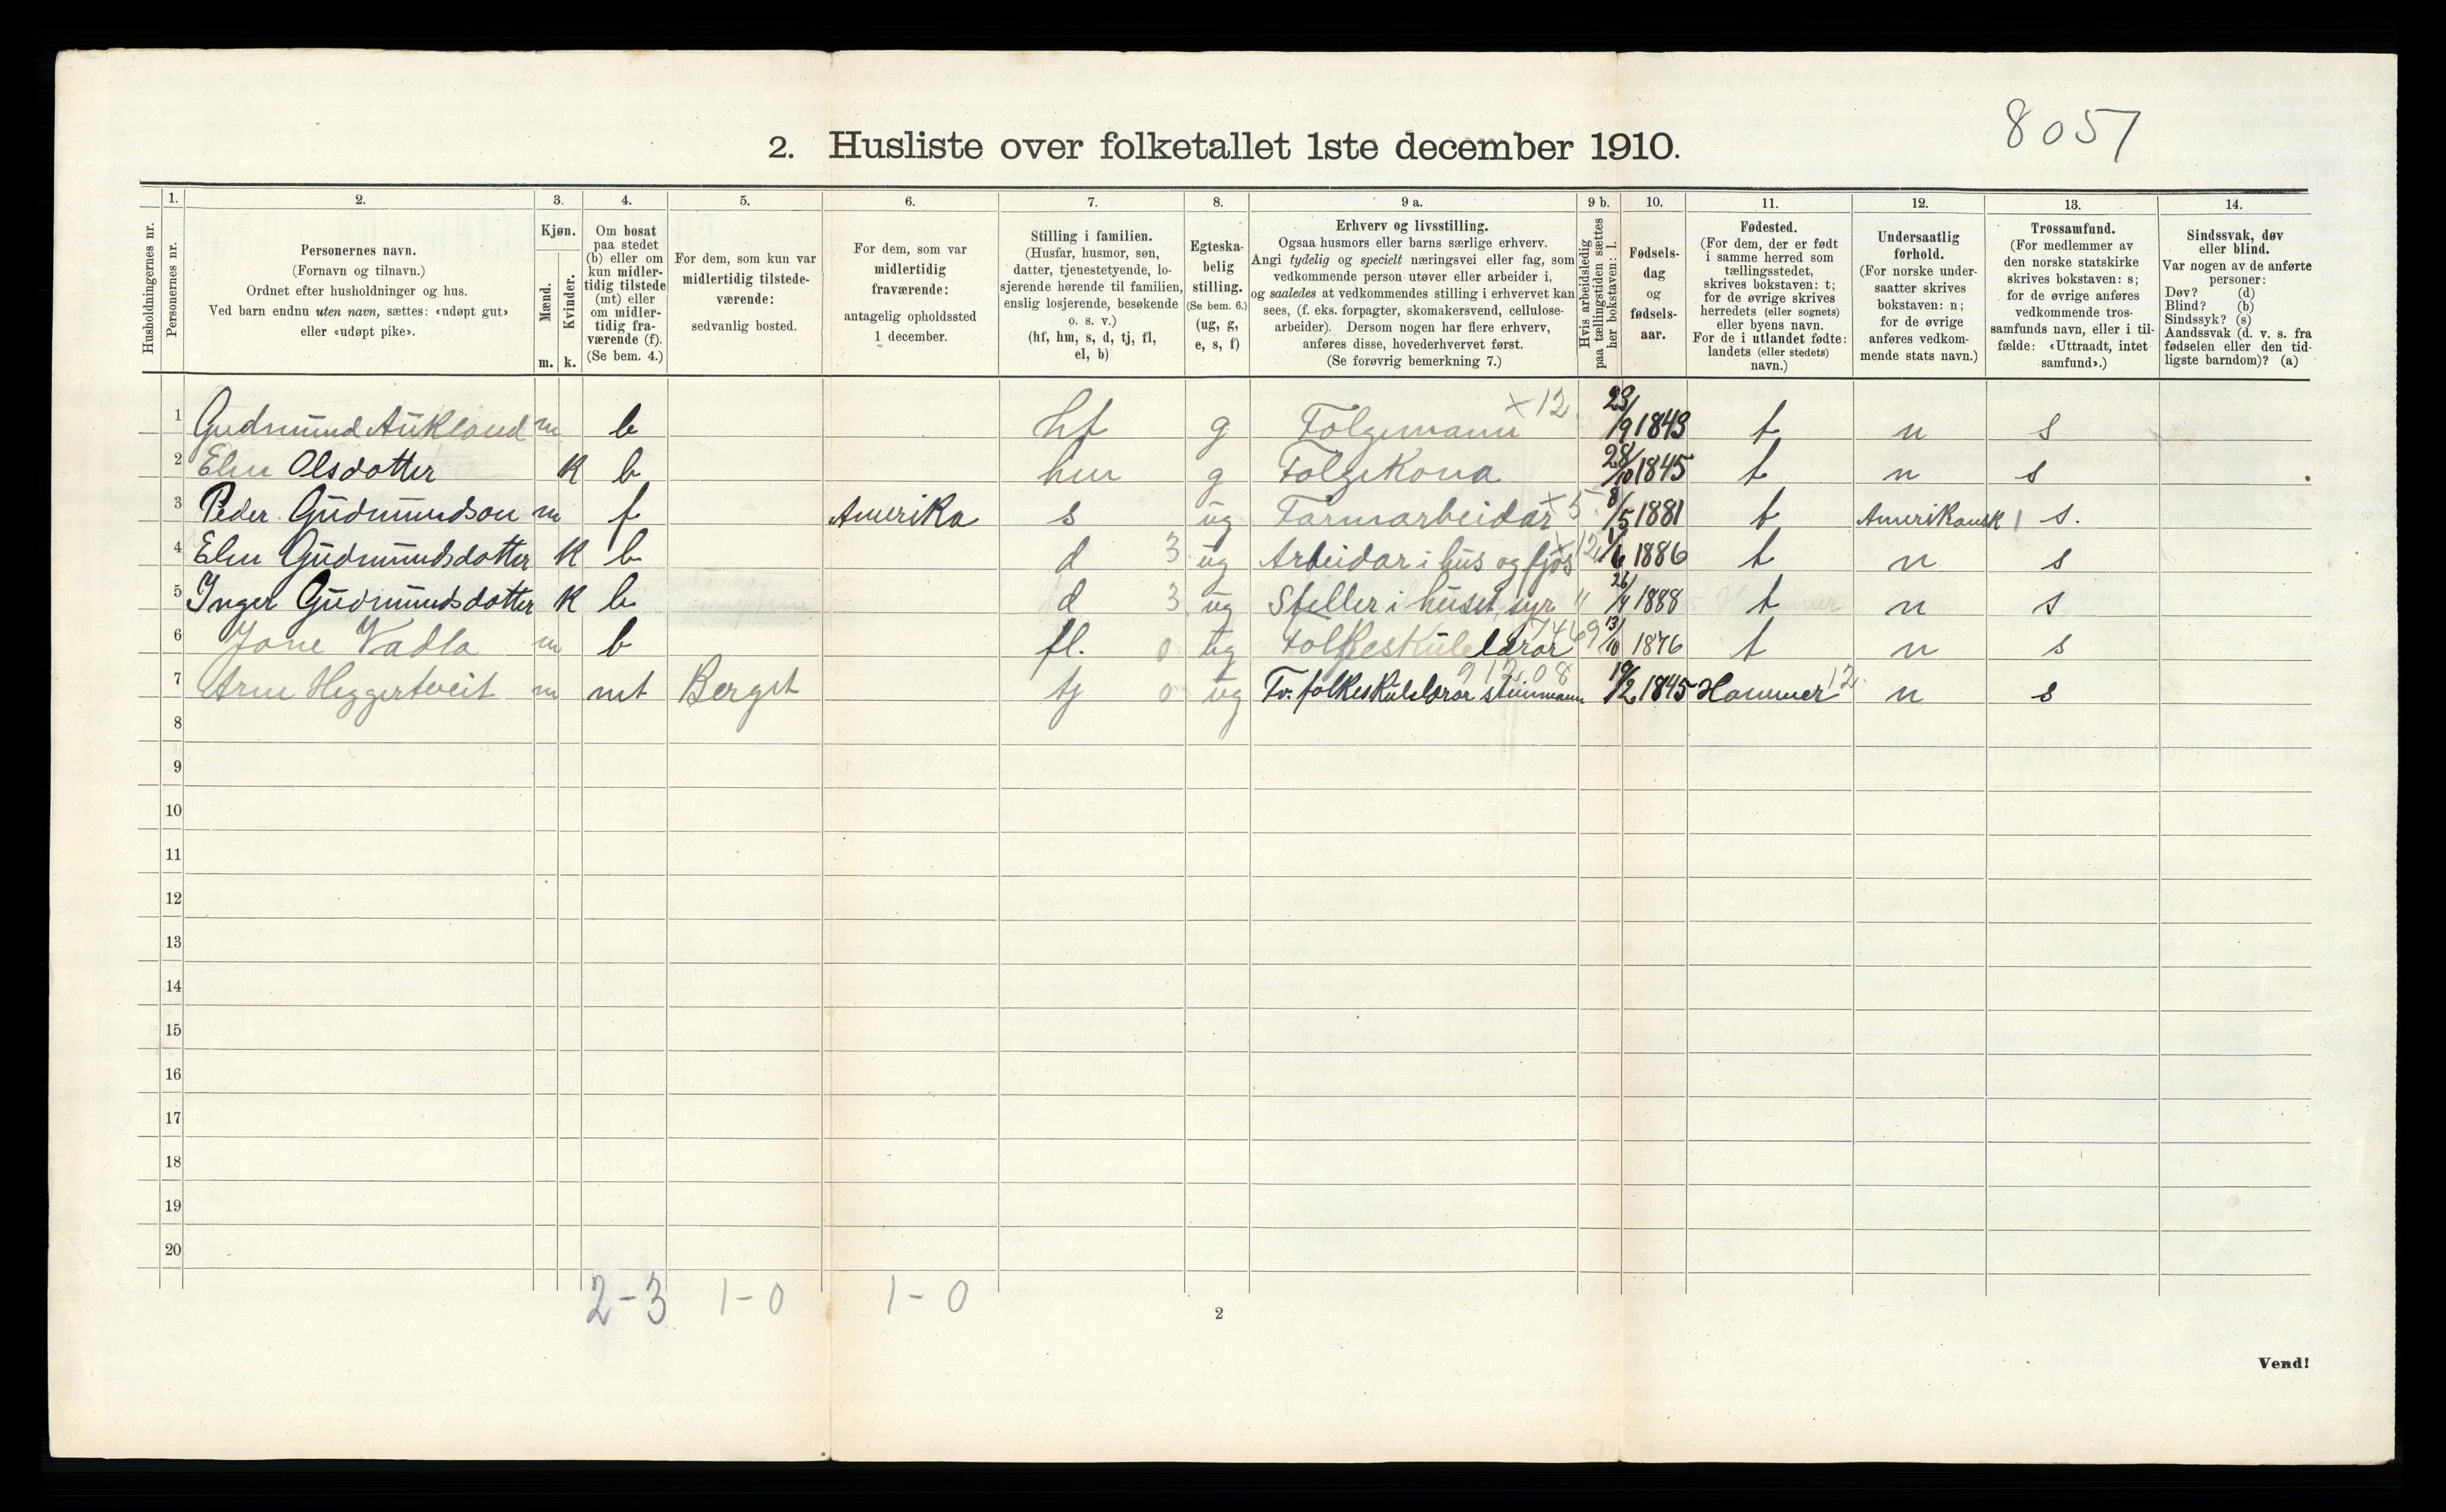 8051
2. Husliste over folketallet 1ste december 1910.
Husholdningernes nr.
1. Personernes nr.
2. Personernes navn. (Fornavn og tilnavn.) Ordnet efter husholdninger og hus. Ved barn endnu uten navn, sættes: «udøpt gut» eller «udøpt pike».
3. Kjøn. Mænd. m. Kvinder. k.
4. Om bosat paa stedet (b) eller om kun midlertidig tilstede (mt) eller om midlertidig fraværende (f). (Se bem. 4.)
5. For dem, som kun var midlertidig tilstedeværende: sedvanlig bosted.
6. For dem, som var midlertidig fraværende: antagelig opholdssted 1 december.
7. Stilling i familien. (Husfar, husmor, søn, datter, tjenestetyende, losjerende hørende til familien, enslig losjerende, besøkende o. s. v.) (hf, hm, s, d, tj, fl, el, b)
8. Egteskabelig stilling. (Se bem. 6.) (ug, g, e, s, f)
9 a. Erhverv og livsstilling. Ogsaa husmors eller barns særlige erhverv. Angi tydelig og specielt næringsvei eller fag, som vedkommende person utøver eller arbeider i, og saaledes at vedkommendes stilling i erhvervet kan sees, (f. eks. forpagter, skomakersvend, cellulosearbeider). Dersom nogen har flere erhverv, anføres disse, hovederhvervet først. (Se forøvrig bemerkning 7.)
9 b. Hvis arbeidsledig paa tællingstiden sættes her bokstaven: l.
10. Fødselsdag og fødselsaar.
11. Fødested. (For dem, der er født i samme herred som tællingsstedet, skrives bokstaven: t; for de øvrige skrives herredets (eller sognets) eller byens navn. For de i utlandet fødte: landets (eller stedets) navn.)
12. Undersaatlig forhold. (For norske undersaatter skrives bokstaven: n; for de øvrige anføres vedkommende stats navn.)
13. Trossamfund. (For medlemmer av den norske statskirke skrives bokstaven: s; for de øvrige anføres vedkommende trossamfunds navn, eller i tilfælde: «Uttraadt, intet samfund».)
14. Sindssvak, døv eller blind. Var nogen av de anførte personer: Døv? (d) Blind? (b) Sindssyk? (s) Aandssvak (d. v. s. fra fødselen eller den tidligste barndom)? (a)
1 Gudmund Aukland m b hf g Folgemann x 12 23/9 1843 t n s
2 Elen Olsdotter K b hm g Folgekona 28/10 1845 t n s
3 Peder Gudmundson m f Amerika s ug Farmarbeidar x 5 8/5 1881 t Amerikansk 1 s.
4 Elen Gudmundsdotter K b d 3 ug Arbeidar i hus og fjos x 12 1886 t n s
5 Inger Gudmundsdotter K b d 3 ug Steller i huset, syr " 26/4 1888 t n s
6 Jone Vadla m b fl. 0 ug Folkeskulelærar 7469 13/10 1876 t n s
7 Arne Heggertveit m mt Berget tj 0 ug Fv. folkeskulelærar 912.08 19/2 1845 Hammer 12 n s
8
9
10
11
12
13
14
15
16
17
18
19
20
2-3 1-0 1-0
2
Vend!